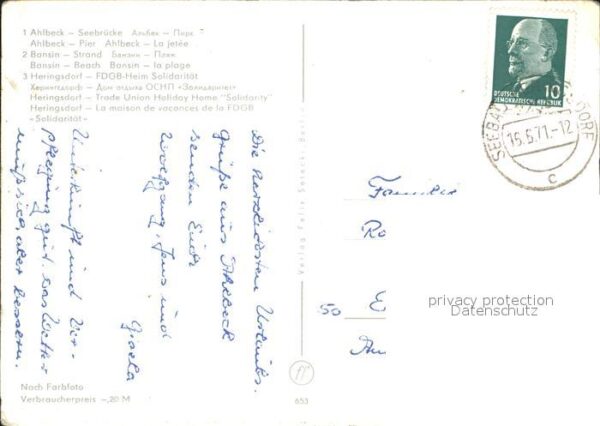 1 Ahlbeck – Seebrücke Альбек – Пирс
Ahlbeck – Pier Ahlbeck – La jetée
2 Bansin – Strand Банзин – Пляж
Bansin – Beach Bansin – la plage
3 Heringsdorf – FDGB-Heim Solidarität
Херингсдорф – Дом отдыха ОСНП «Солидаритет»
Heringsdorf – Trade Union Holiday Home "Solidarity"
Heringsdorf – La maison de vacances de la FDGB
«Solidarität»
Die herzlichsten Urlaubs-
grüße aus Ahlbeck
senden Euch
Wolfgang, Jens und
Gisela
Unterkunft und Ver-
pflegung gut. Das Wetter
muß sich aber bessern.
Nach Farbfoto
Verbraucherpreis –,20 M
Verlag Felix Setecki
653
10
DEUTSCHE
DEMOKRATISCHE REPUBLIK
SEEBAD
DORF
15.6.71.-12
c
Familie
Ro
50 E
An
privacy protection
Datenschutz